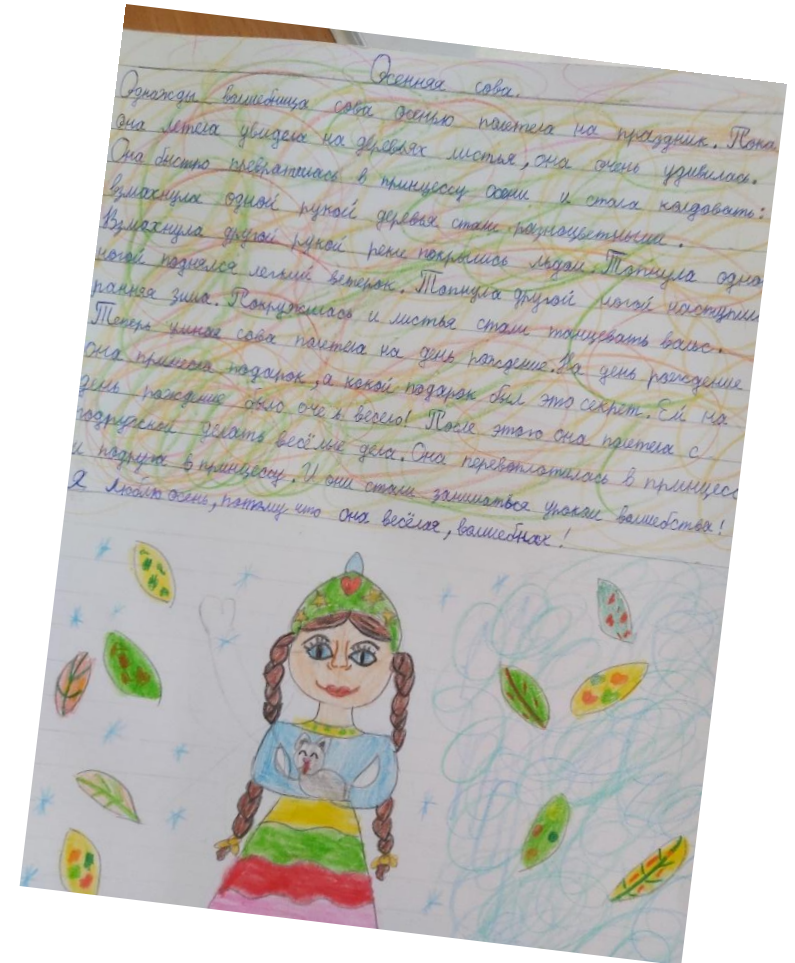 Осенняя сова.
Однажды волшебница сова осенью полетела на праздник. Пока
она летела увидела на деревьях листья, она очень удивилась.
Она быстро превратилась в принцессу осени и стала колдовать:
взмахнула одной рукой деревья стали разноцветными.
Взмахнула другой рукой реки покрылись льдом. Топнула одно
ногой поднялся легкий ветерок. Топнула другой ногой наступил
ранняя зима. Покружилась и листья стали танцевать вальс.
Теперь умная сова полетела на день раждение. На день рождение
она принесла подарок, а какой подарок был это секрет. Ей на
день рождение было очень весело! После этого она полетела с
подружкой делать весёлые дела. Она перевоплотилась в принцесс
и подруга в принцессу. И они стали заниматься уроком волшебства!
Я люблю осень, потому что она весёлая, волшебная!